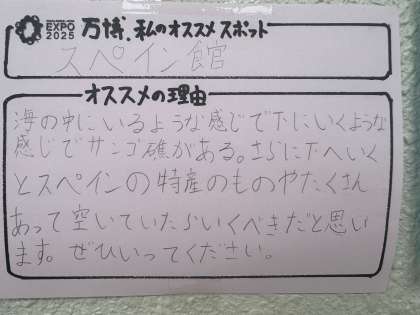 EXPO
2025
万博、私のオススメスポット
スペイン館
オススメの理由
海の中にいるような感じで下にいくような
感じでサンゴ礁がある。さらに下へいく
とスペインの特産のものやたくさん
あって空いていたらいくべきだと思い
ます。ぜひいってください。